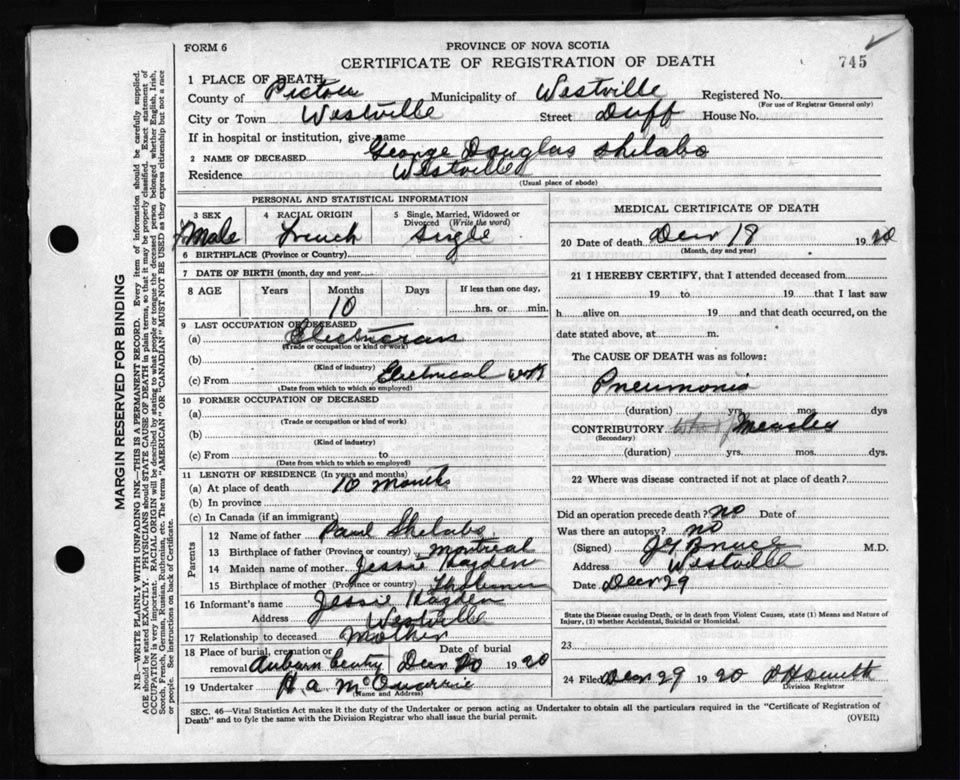 FORM 6
PROVINCE OF NOVA SCOTIA
CERTIFICATE OF REGISTRATION OF DEATH
745
1 PLACE OF DEATH
County of Pictou Municipality of Westville Registered No.
(For use of Registrar General only)
City or Town Westville Street Duff House No.
If in hospital or institution, give name
2 NAME OF DECEASED George Douglas Shelabo
Residence Westville
(Usual place of abode)
PERSONAL AND STATISTICAL INFORMATION
3 SEX 4 RACIAL ORIGIN 5 Single, Married, Widowed or Divorced (Write the word)
Male French Single
6 BIRTHPLACE (Province or Country)
7 DATE OF BIRTH (month, day and year)
8 AGE Years Months Days If less than one day,
10 hrs. or min.
9 LAST OCCUPATION OF DECEASED
(a) Electrician
(Trade or occupation or kind of work)
(b)
(Kind of industry)
(c) From Electrical work
(Date from which to which so employed)
10 FORMER OCCUPATION OF DECEASED
(a)
(Trade or occupation or kind of work)
(b)
(Kind of industry)
(c) From to
(Date from which to which so employed)
11 LENGTH OF RESIDENCE (In years and months)
(a) At place of death 10 months
(b) In province
(c) In Canada (if an immigrant)
Parents
12 Name of father Paul Shelabo
13 Birthplace of father (Province or country) Montreal
14 Maiden name of mother Jessie Hayden
15 Birthplace of mother (Province or country)
16 Informant's name Jessie Hayden
Address Westville
17 Relationship to deceased Mother
18 Place of burial, cremation or removal Date of burial
Auburn Cemtry Decr 20 1920
19 Undertaker H. A. McQuarrie
(Name and Address)
MEDICAL CERTIFICATE OF DEATH
20 Date of death Decr 19 1920
(Month, day and year)
21 I HEREBY CERTIFY, that I attended deceased from
19 to 19 that I last saw
h alive on 19 and that death occurred, on
date stated above, at m.
The CAUSE OF DEATH was as follows:
Pneumonia
(duration) yrs. mos. dys
CONTRIBUTORY Measles
(Secondary)
(duration) yrs. mos. dys.
22 Where was disease contracted if not at place of death?
Did an operation precede death? no Date of
Was there an autopsy? no
(Signed) M.D.
Address Westville
Date Decr 29
State the Disease causing Death, or in death from Violent Causes, state (1) Means and Nature of
Injury, (2) whether Accidental, Suicidal or Homicidal.
23
24 Filed Decr 29 1920 D H Smith
Division Registrar
SEC. 46—Vital Statistics Act makes it the duty of the Undertaker or person acting as Undertaker to obtain all the particulars required in the "Certificate of Registration of
Death" and to fyle the same with the Division Registrar who shall issue the burial permit.
(OVER)
MARGIN RESERVED FOR BINDING
N.B.—WRITE PLAINLY WITH UNFADING INK—THIS IS A PERMANENT RECORD. Every item of information should be carefully supplied.
AGE should be stated EXACTLY. PHYSICIANS should STATE CAUSE OF DEATH in plain terms, so that it may be properly classified. Exact statement of
OCCUPATION is very important. RACIAL ORIGIN will be described by stating to what people or tongue the deceased person belonged whether English, Irish,
Scotch, French, German, Russian, Ruthenian, etc. The terms "AMERICAN" OR "CANADIAN" MUST NOT BE USED as they express citizenship but not a race
or people. See instructions on back of Certificate.